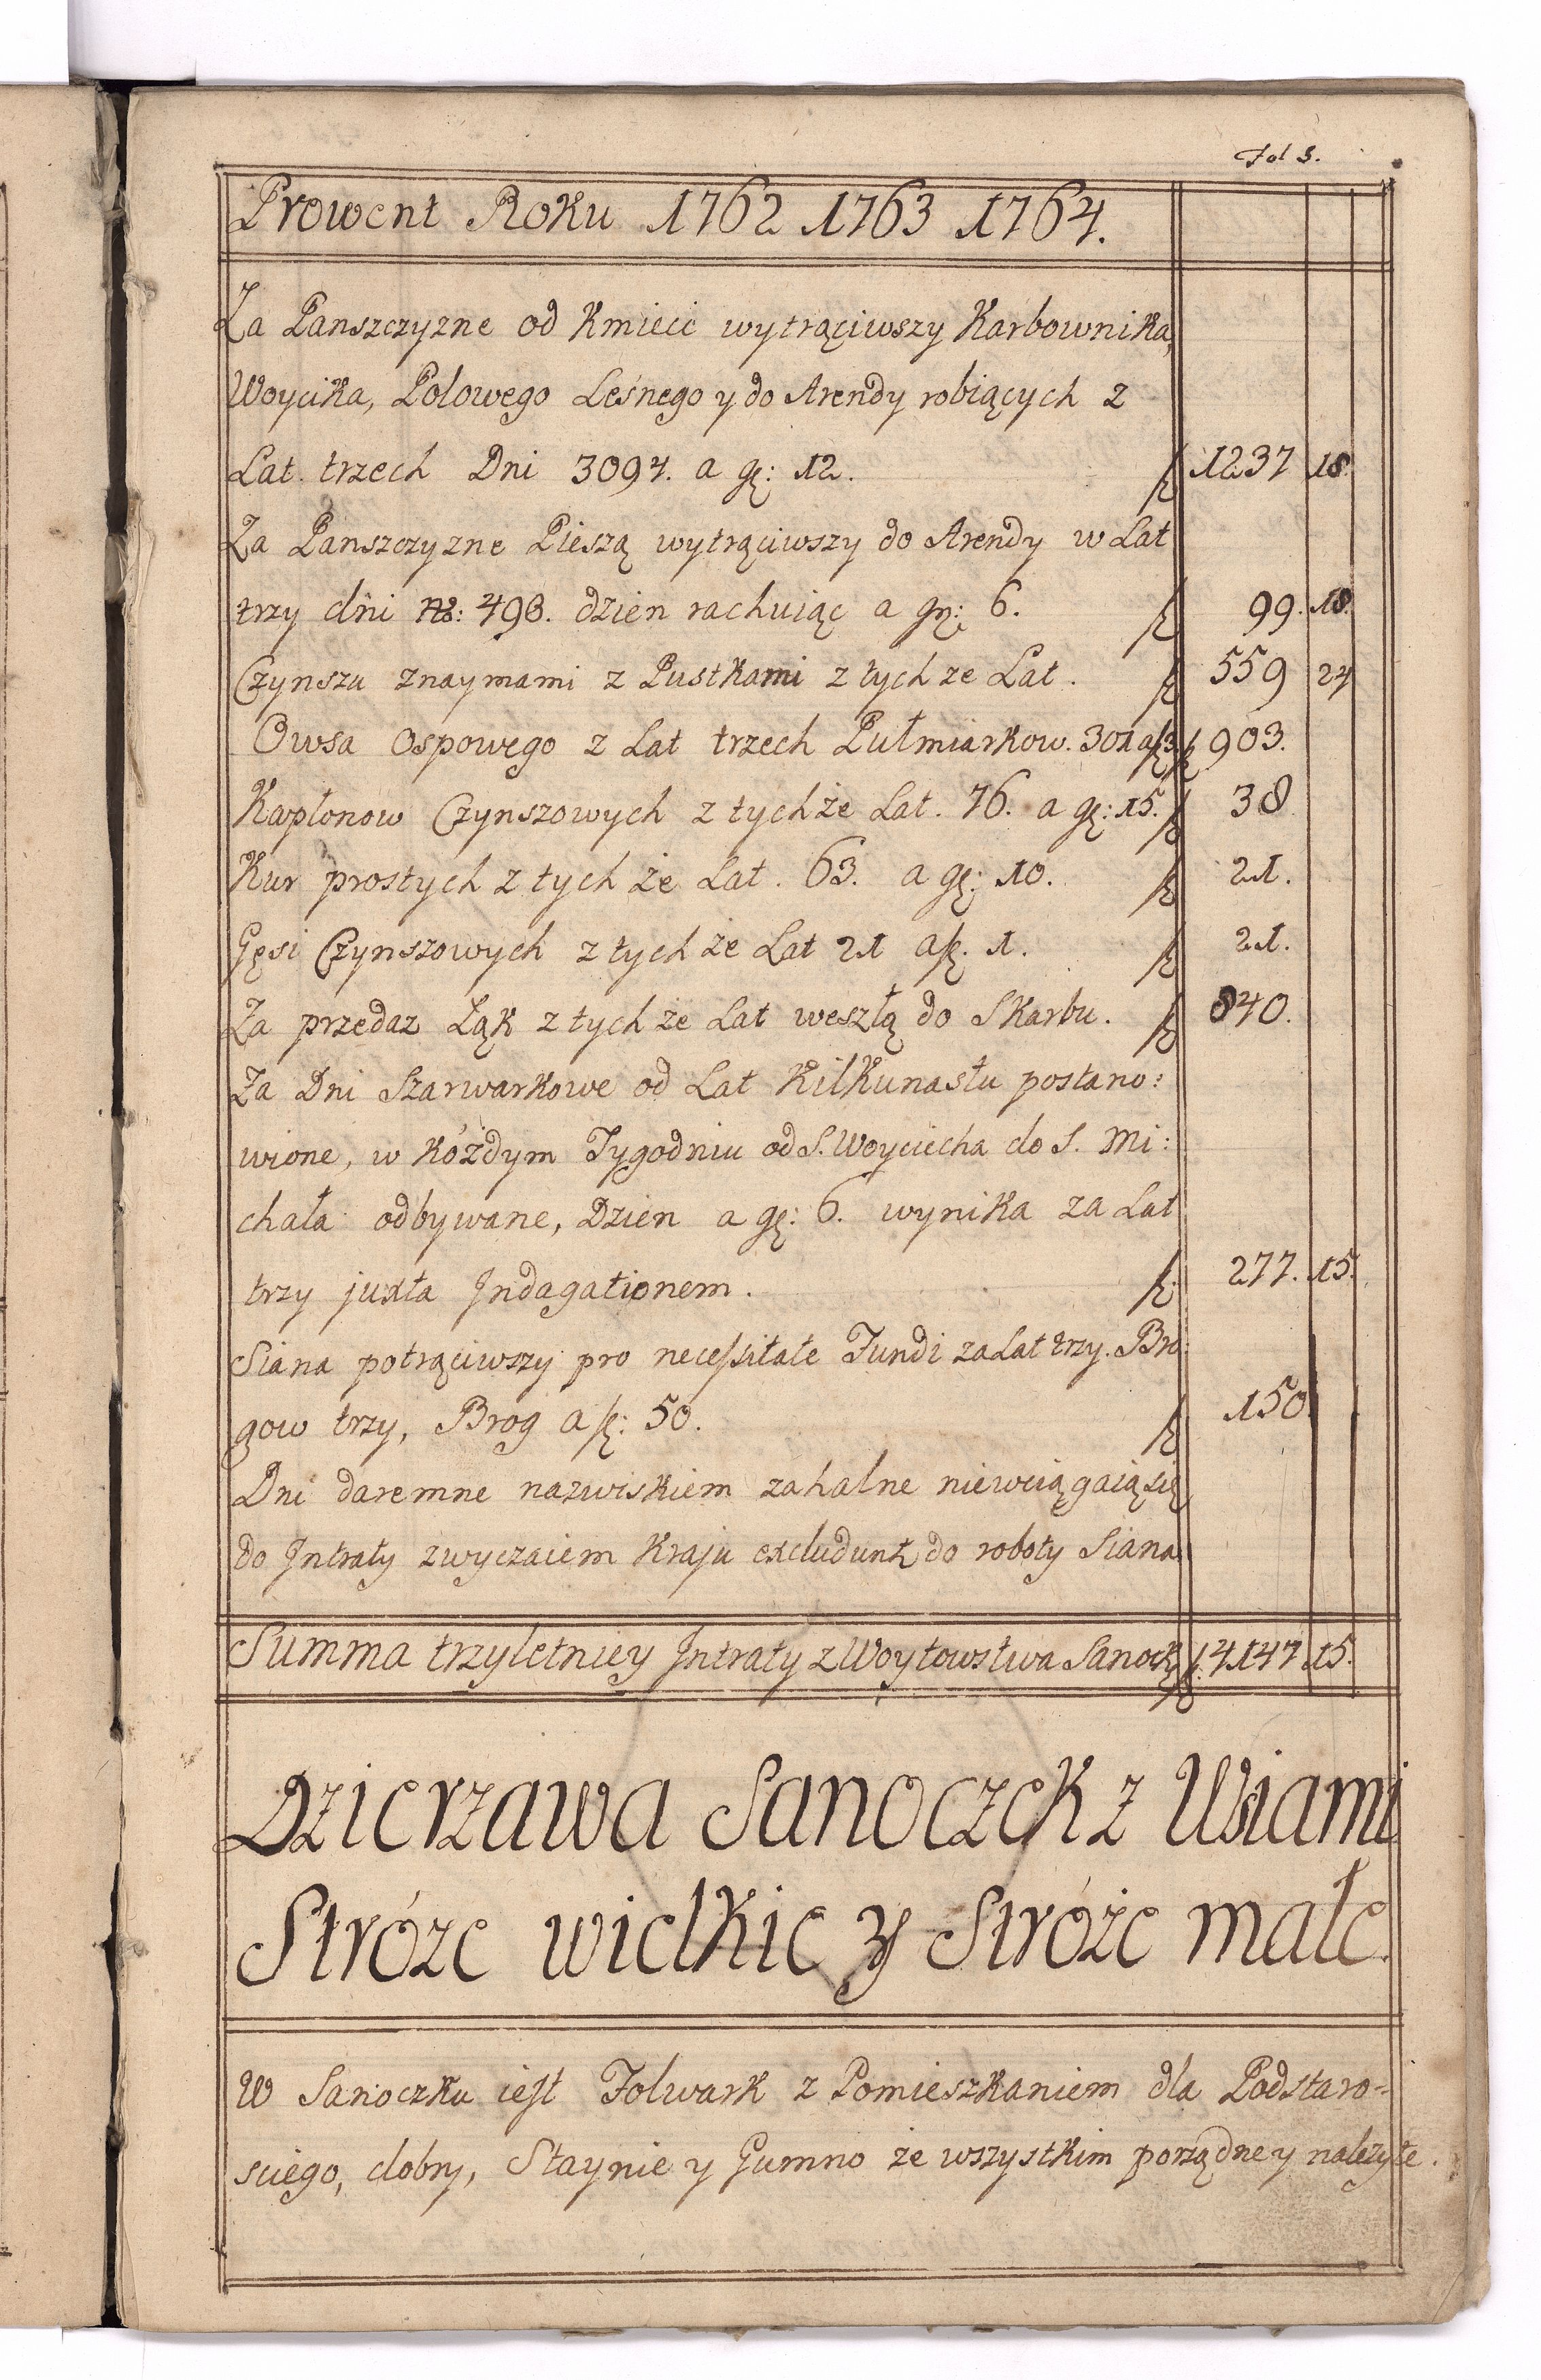 Fol 3.
Prowent Roku 1762 1763 1764.
Za Panszczyzne od Kmieci wytrąciwszy Karbownika,
Woycika, Polowego Leśnego y do Arendy robiących z
Lat trzech Dni 3094. a gę: 12. 1237 18.
Za Panszczyzne Pieszą wytrąciwszy do Arendy w Lat
trzy dni No: 498. dzien rachuiąc a gę: 6. 99. 18.
Czynszu znaymami z Pustkami z tych ze Lat. 559 24
Owsa Ospowego z Lat trzech Pułmiarkow. 301 a 3. 903.
Kapłonow Czynszowych z tych że Lat. 76. a gę: 15. 38
Kur prostych z tych że Lat. 63. a gę: 10. 21.
Gęsi Czynszowych z tych że Lat 21 a ſę. 1. 21.
Za przedaz Łąk z tych że Lat weszłą do Skarbu. 840.
Za Dni Szarwarkowe od Lat Kilkunastu postano:
wione, w kóżdym Tygodniu od S. Woyciecha do S. Mi:
chała odbywane, Dzien a gę: 6. wynika za Lat
trzy juxta Indagationem. 277. 15.
Siana potrąciwszy pro necessitate Fundi za Lat trzy. Bro:
gow trzy, Brog a ſę: 50. 150.
Dni daremne nazwiskiem zahalne niewciągaią się
do Intraty zwyczaiem Kraju excludunt do roboty Siana
Summa trzyletniey Intraty z Woytowstwa Sanock 4147 15.
Dzierzawa Sanoczek z Wsiami
Stróże wielkie y Stróże małe.
W Sanoczku iest Folwark z Pomieszkaniem dla Podstaro=
sciego, dobry, Staynie y Gumno ze wszystkim porządne y nalezyte.